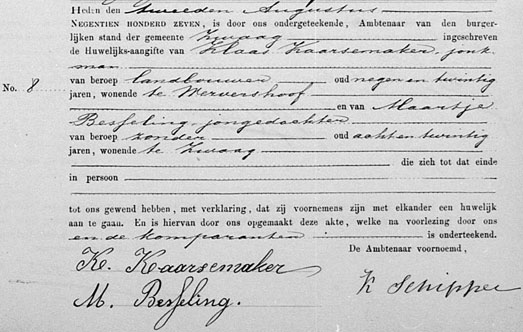 Heden den tweeden Augustus
NEGENTIEN HONDERD ZEVEN, is door ons ondergeteekende, Ambtenaar van den burger-
lijken stand der gemeente Zwaag ingeschreven
de Huwelijks-aangifte van Klaas Kaarsemaker, jonk-
man
van beroep landbouwer oud negen en twintig
No. 8 jaren, wonende te Wervershoof
en van Maartje
Besseling, jongedochter
van beroep zonder oud acht en twintig
jaren, wonende te Zwaag
die zich tot dat einde
in persoon
tot ons gewend hebben, met verklaring, dat zij voornemens zijn met elkander een huwelijk
aan te gaan. En is hiervan door ons opgemaakt deze akte, welke na voorlezing door ons
en de komparanten is onderteekend.
De Ambtenaar voornoemd,
K. Kaarsemaker
K Schipper
M. Besseling.